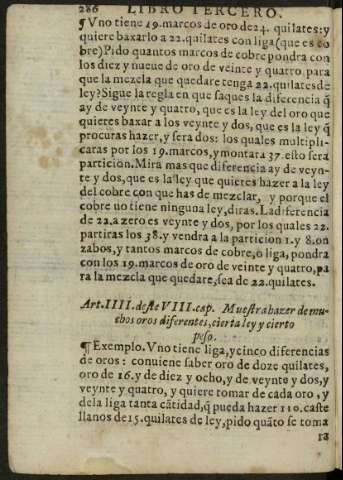 286 LIBRO TERCERO.
¶ Vno tiene 19. marcos de oro de 24. quilates: y
quiere baxarlo a 22. quilates con liga (que es co
bre) Pido quantos marcos de cobre pondra con
los diez y nueue de oro de veinte y quatro para
que la mezcla que quedare tenga 22. quilates de
ley? Sigue la regla en que saques la diferencia q̃
ay de veynte y quatro, que es la ley del oro que
quieres baxar a los veynte y dos, que es la ley q̃
procuras hazer, y sera dos: los quales multipli-
caras por los 19. marcos, y montara 37. esto será
particion. Mira mas que diferencia ay de veyn-
te y dos, que es la ley que quieres hazer a la ley
del cobre con que has de mezclar, y porque el
cobre no tiene ninguna ley, diras. La diferencia
de 22. a zero es veynte y dos, por los quales 22.
partiras los 38. y vendra a la particion 1. y 8. on
zabos, y tantos marcos de cobre, o liga, pondra
con los 19. marcos de oro de veinte y quatro, pa
ra la mezcla que quedare, sea de 22. quilates.
Art. IIII. deste VIII. cap. Muestra hazer de mu-
chos oros diferentes, cierta ley y cierto
peso.
¶ Exemplo. Vno tiene liga, y cinco diferencias
de oros: conuiene saber oro de doze quilates,
oro de 16. y de diez y ocho, y de veynte y dos, y
veynte y quatro, y quiere tomar de cada oro, y
dela liga tanta cãtidad, q̃ pueda hazer 110. caste
llanos de 15. quilates de ley, pido quãto se toma
ra